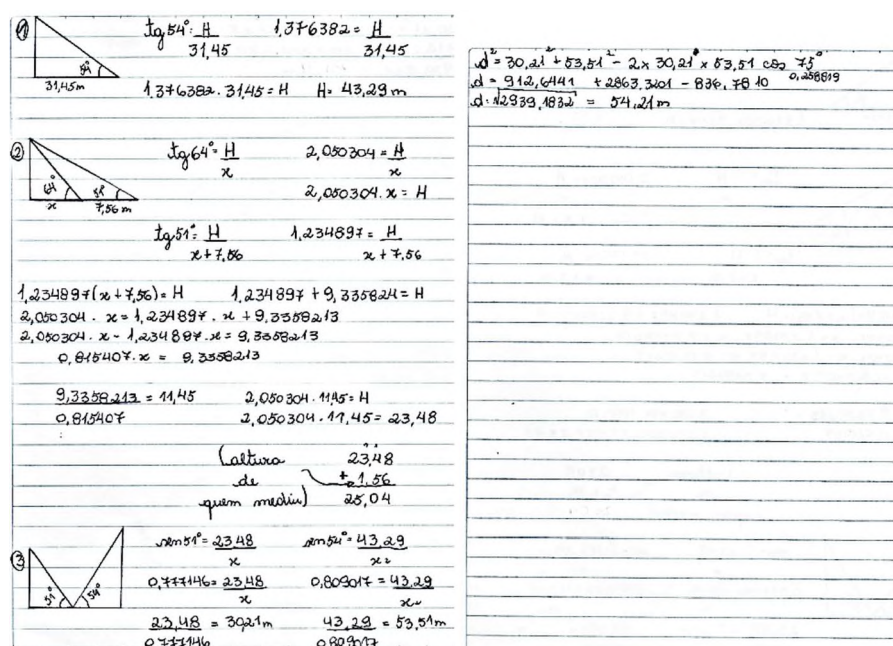 1 tg 54° = H/31,45 1,376382 = H/31,45
54°
31,45m
1,376382 . 31,45 = H H = 43,29 m
2 tg 64° = H/x 2,050304 = H/x
64° 51°
x 7,56 m
2,050304 . x = H
tg 51° = H/x + 7,56 1,234897 = H/x + 7,56
1,234897 (x + 7,56) = H 1,234897 + 9,335824 = H
2,050304 . x = 1,234897 . x + 9,3358213
2,050304 . x - 1,234897 . x = 9,3358213
0,815407 . x = 9,3358213
9,3358213/0,815407 = 11,45 2,050304 . 11,45 = H
2,050304 . 11,45 = 23,48
(altura 23,48
de + 1,56
quem mediu) 25,04
3 sen 51° = 23,48/x sen 54° = 43,29/x
51° 54°
0,777146 = 23,48/x 0,809017 = 43,29/x
23,48/0,777146 = 30,21m 43,29/0,809017 = 53,51m
d² = 30,21² + 53,51² - 2 x 30,21 x 53,51 cos 75°
d = 912,6441 + 2863,3201 - 836,7810 0,258819
d = √2939,1832 = 54,21m